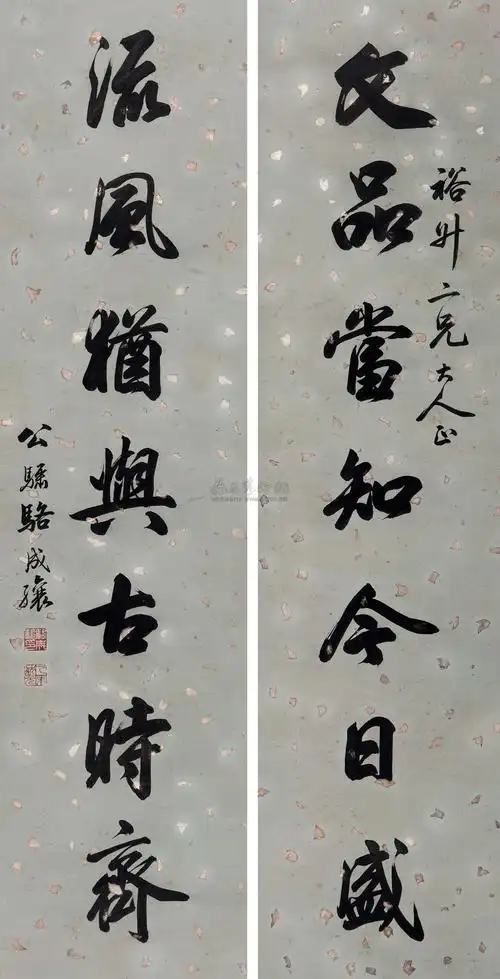 文品當知今日盛
裕升二兄大人正
流風猶與古時齊
公驌駱成驤